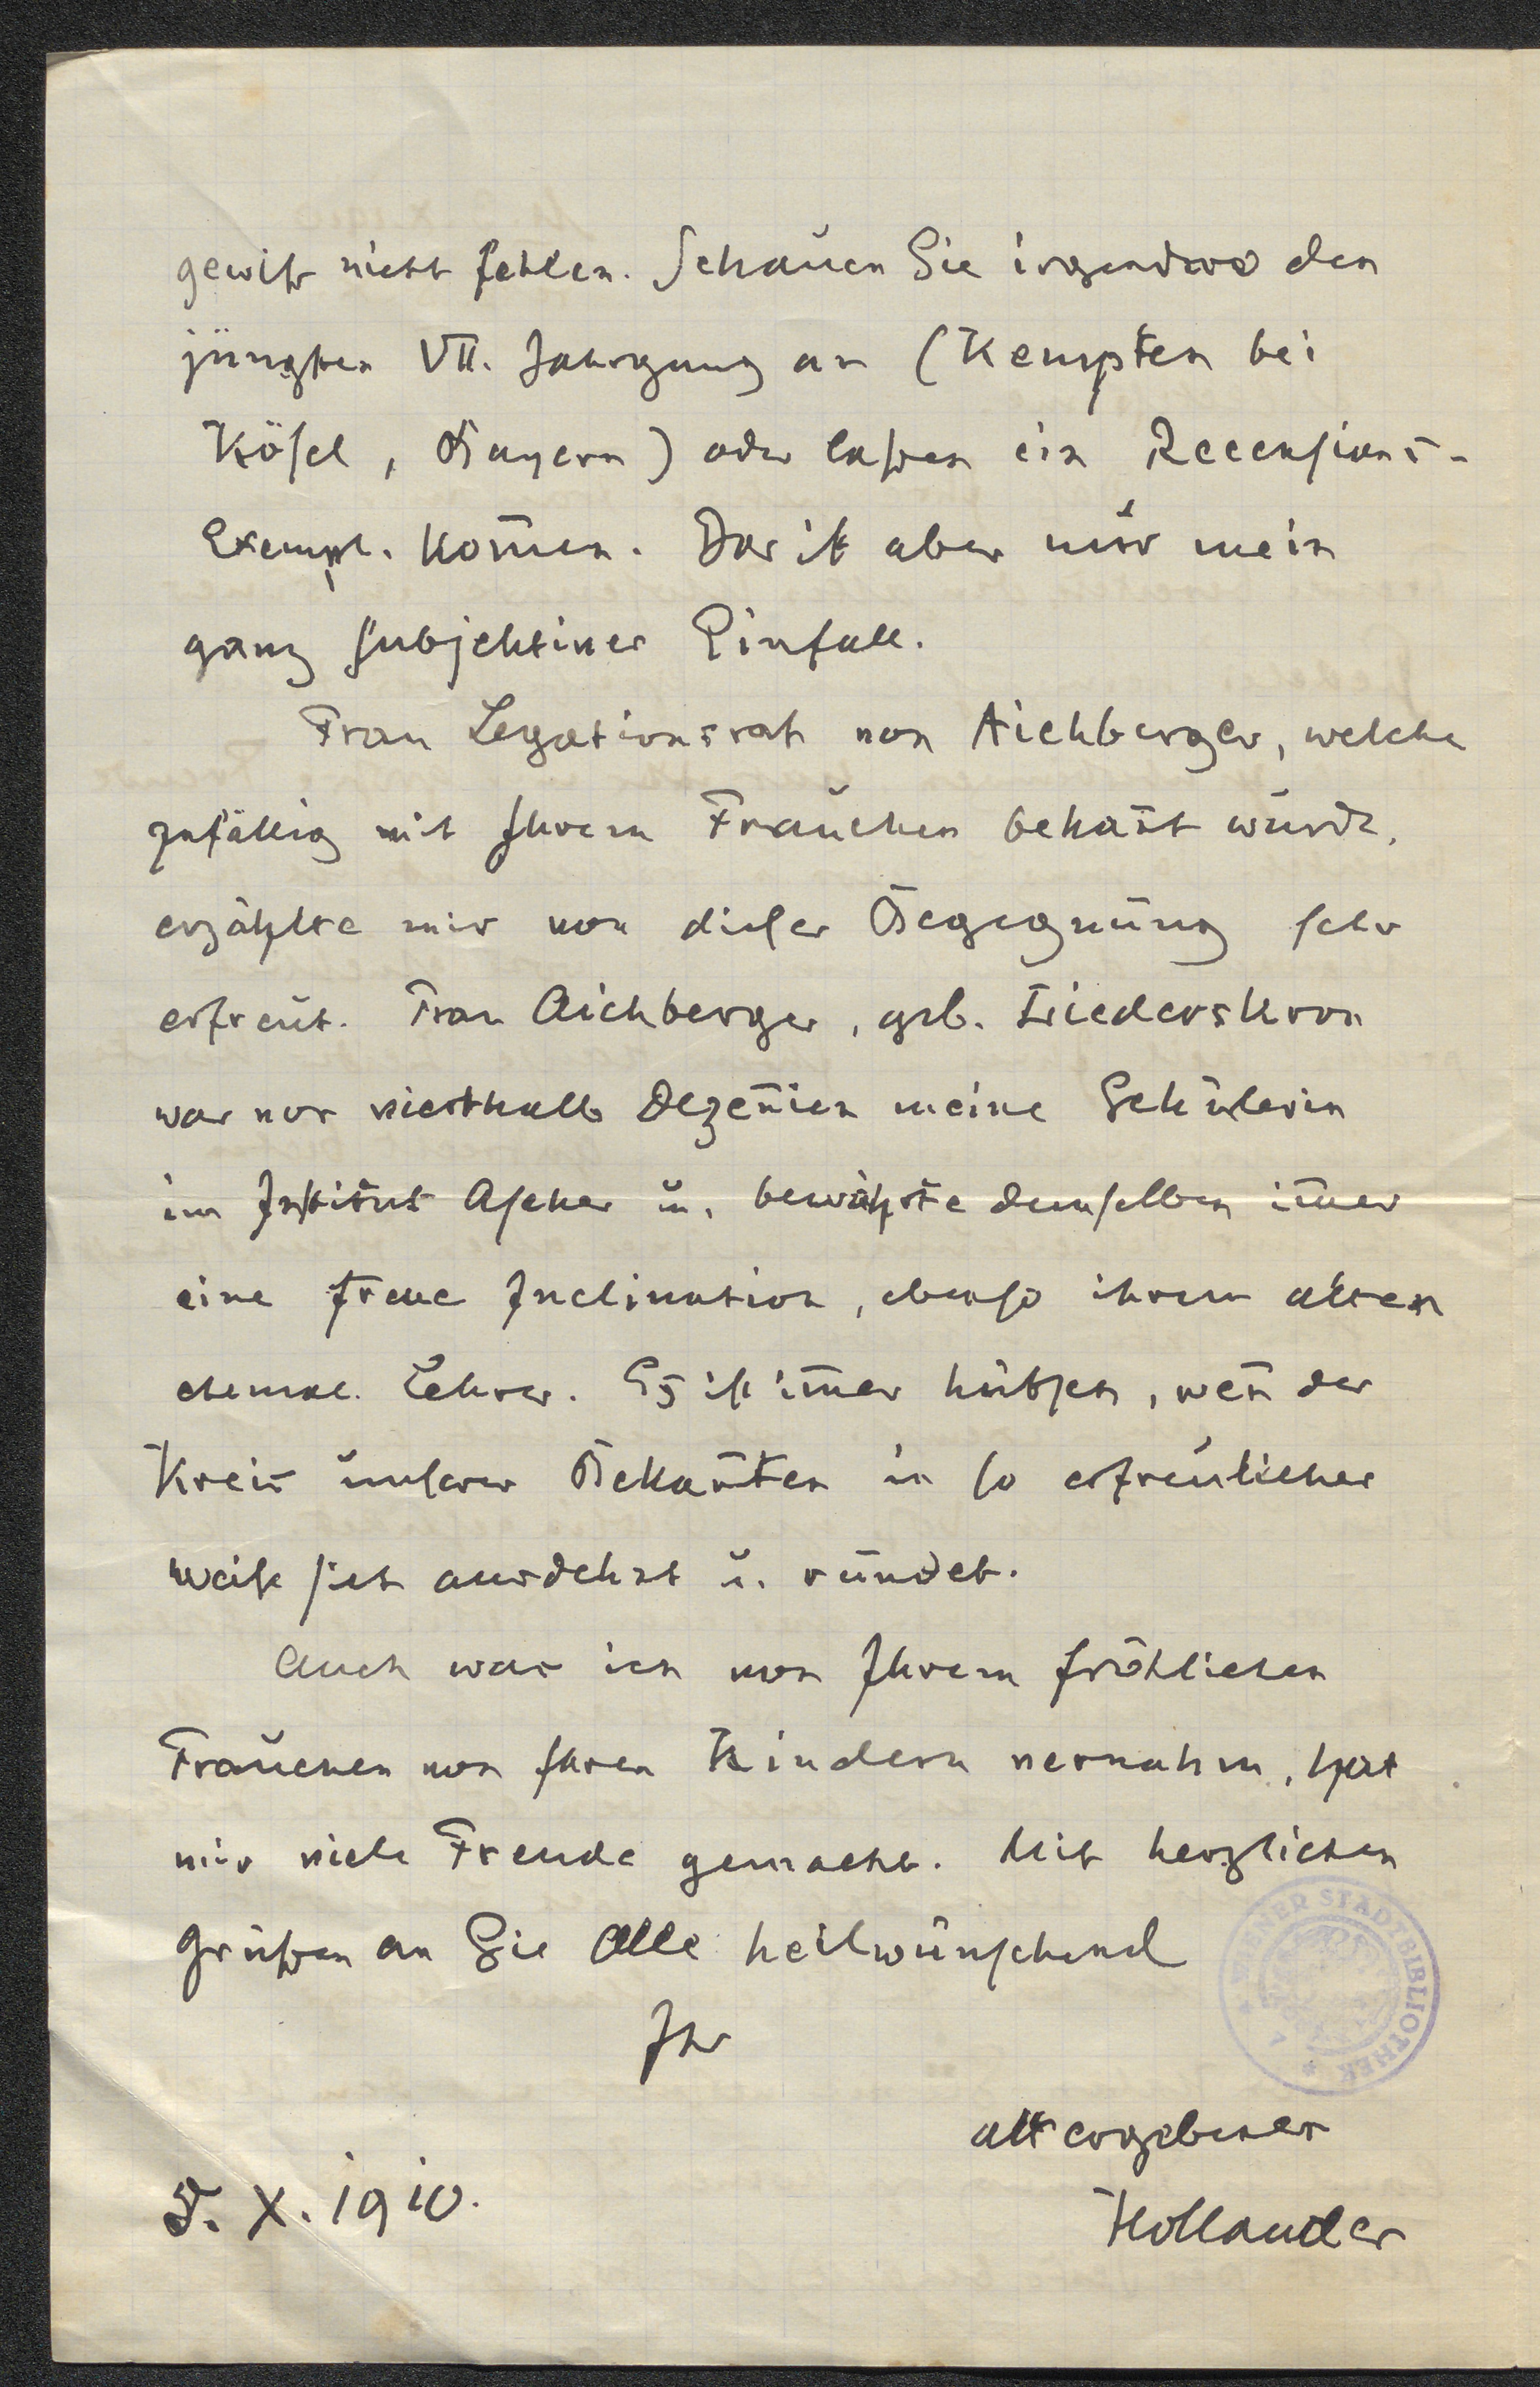 gewiß nicht fehlen. Schauen Sie irgendwo den
jüngsten VII. Jahrgang an (Kempten bei
Kösel, Bayern) oder laßen ein Recensions-
Exempl. kom̅en. Das ist aber nur mein
ganz subjektiver Einfall.
Frau Legationsrath von Aichberger, welche
zufällig mit Ihrem Frauchen bekan̅t wurde,
erzählte mir von dieser Begegnung sehr
erfreut. Frau Aichberger, geb. Riederskron
war vor vierthalb Dezen̅ien meine Schülerin
im Institut Ascher u. bewahrte demselben im̅er
eine treue Inclination, ebenso ihrem alten
ehemal. Lehrer. Es ist im̅er hübsch, wen̅ der
Kreis unserer Bekan̅ten in so erfreulicher
Weise sich ausdehnt u. rundet.
Auch was ich von Ihrem fröhlichen
Frauchen von Ihren Kindern vernahm, hat
mir viele Freude gemacht. Mit herzlichen
Grüßen an Sie Alle heilwünschend
Ihr
altergebener
Hollander
5. X. 1910.
WIENER STADTBIBLIOTHEK